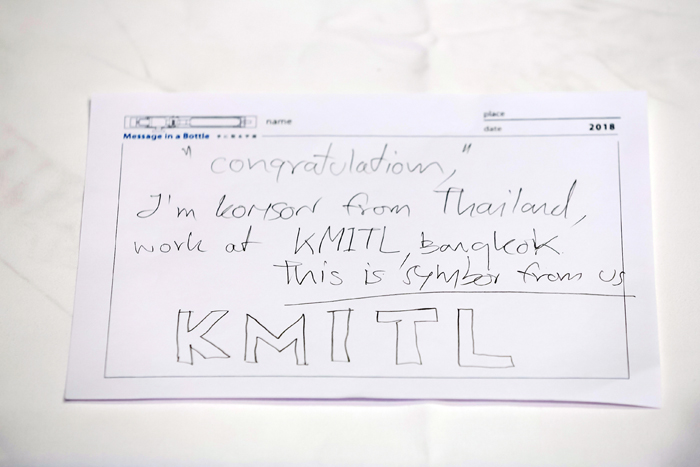 name
place
Message in a Bottle
date 2018
"congratulation,"
I'm komson from Thailand,
work at KMITL, Bangkok.
This is symbol from us
KMITL